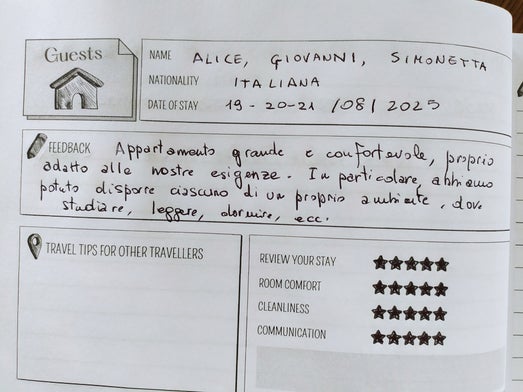 Guests
NAME ALICE, GIOVANNI, SIMONETTA
NATIONALITY ITALIANA
DATE OF STAY 19-20-21 /08/ 2025
FEEDBACK Appartamento grande e confortevole, proprio
adatto alle nostre esigenze. In particolare, abbiamo
potuto disporre ciascuno di un proprio ambiente, dove
studiare, leggere, dormire, ecc.
TRAVEL TIPS FOR OTHER TRAVELLERS
REVIEW YOUR STAY
ROOM COMFORT
CLEANLINESS
COMMUNICATION